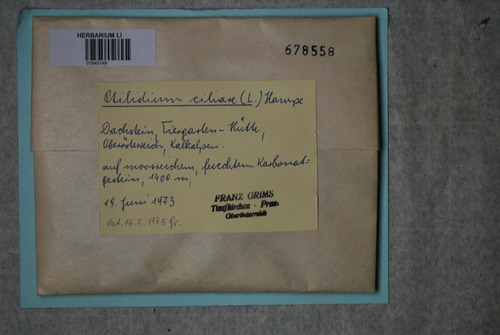 HERBARIUM LI
01645149
678558
Ptilidium ciliare (L.) Hampe
Dachstein, Tiergarten-Hütte,
Oberösterreich, Kalkalpen.
auf moosreichem, feuchtem Karbonat-
gestein, 1400 m,
19. Juni 1973
det. 16. 2. 1975 Gr.
FRANZ GRIMS
Taufkirchen - Pram
Oberösterreich